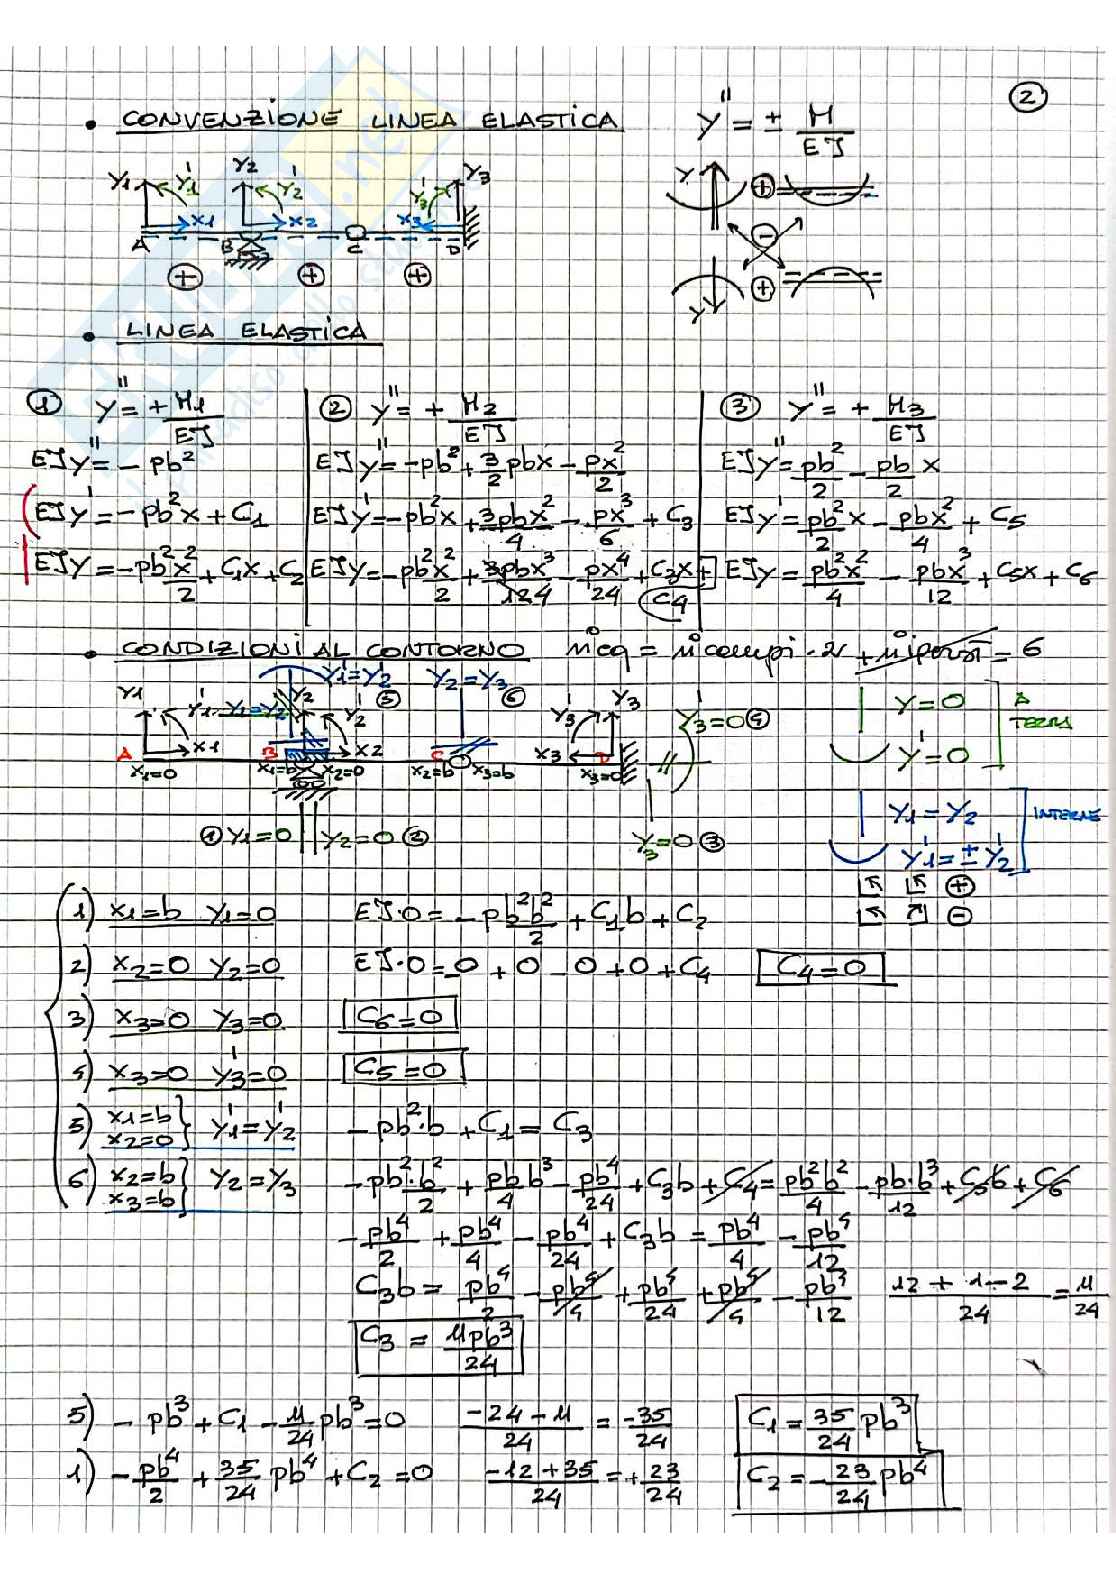 ②
• CONVENZIONE LINEA ELASTICA y'' = ± M/EJ
y1 y'1 y2 y'2 y'3 y3
x1 x2 x3
A B C D
⊕ ⊕ ⊕
y ⊕
⊖
y ⊕
• LINEA ELASTICA
① y'' = + M1/EJ ② y'' = + M2/EJ ③ y'' = + M3/EJ
EJy'' = - pb² EJy'' = -pb² + 3/2 pbx - px²/2 EJy'' = pb²/2 - pb/2 x
EJy' = - pb²x + C1 EJy' = -pb²x + 3pbx²/4 - px³/6 + C3 EJy' = pb²/2 x - pbx²/4 + C5
EJy = -pb²x²/2 + C1x + C2 EJy = -pb²x²/2 + 3pbx³/124 - px⁴/24 + C3x + C4 EJy = pb²x²/4 - pbx³/12 + C5x + C6
• CONDIZIONI AL CONTORNO n°eq = n°campi · 2 + n°iperst = 6
y1 y'1 y'1=y'2 ⑤ y2=y3 ⑥ y'3 y3 y'3=0 ④
y1=y2 y2 y'2
A x1 B x2 C x3 D
x1=0 x1=b x2=0 x2=b x3=b x3=0
① y1=0 y2=0 ② y3=0 ③
y=0 A TERRA
y'=0
y1=y2 INTERNE
y'1=± y'2
⊕
⊖
1) x1=b y1=0 EJ·0 = - pb²b²/2 + C1b + C2
2) x2=0 y2=0 EJ·0 = 0 + 0 0 + 0 + C4 C4=0
3) x3=0 y3=0 C6=0
4) x3=0 y'3=0 C5=0
5) x1=b x2=0 } y'1=y'2 -pb²·b + C1 = C3
6) x2=b x3=b } y2=y3 -pb²·b²/2 + pb b³/4 - pb⁴/24 + C3b + C4 = pb²b²/4 - pb·b³/12 + C5b + C6
-pb⁴/2 + pb⁴/4 - pb⁴/24 + C3b = pb⁴/4 - pb⁴/12
C3b = pb⁴/2 - pb⁴/4 + pb⁴/24 + pb⁴/4 - pb⁴/12 12 + 1 - 2/24 = 11/24
C3 = 11pb³/24
5) - pb³ + C1 - 11/24 pb³ = 0 -24-11/24 = -35/24 C1 = 35/24 pb³
1) -pb⁴/2 + 35/24 pb⁴ + C2 = 0 -12+35/24 = +23/24 C2 = -23/24 pb⁴